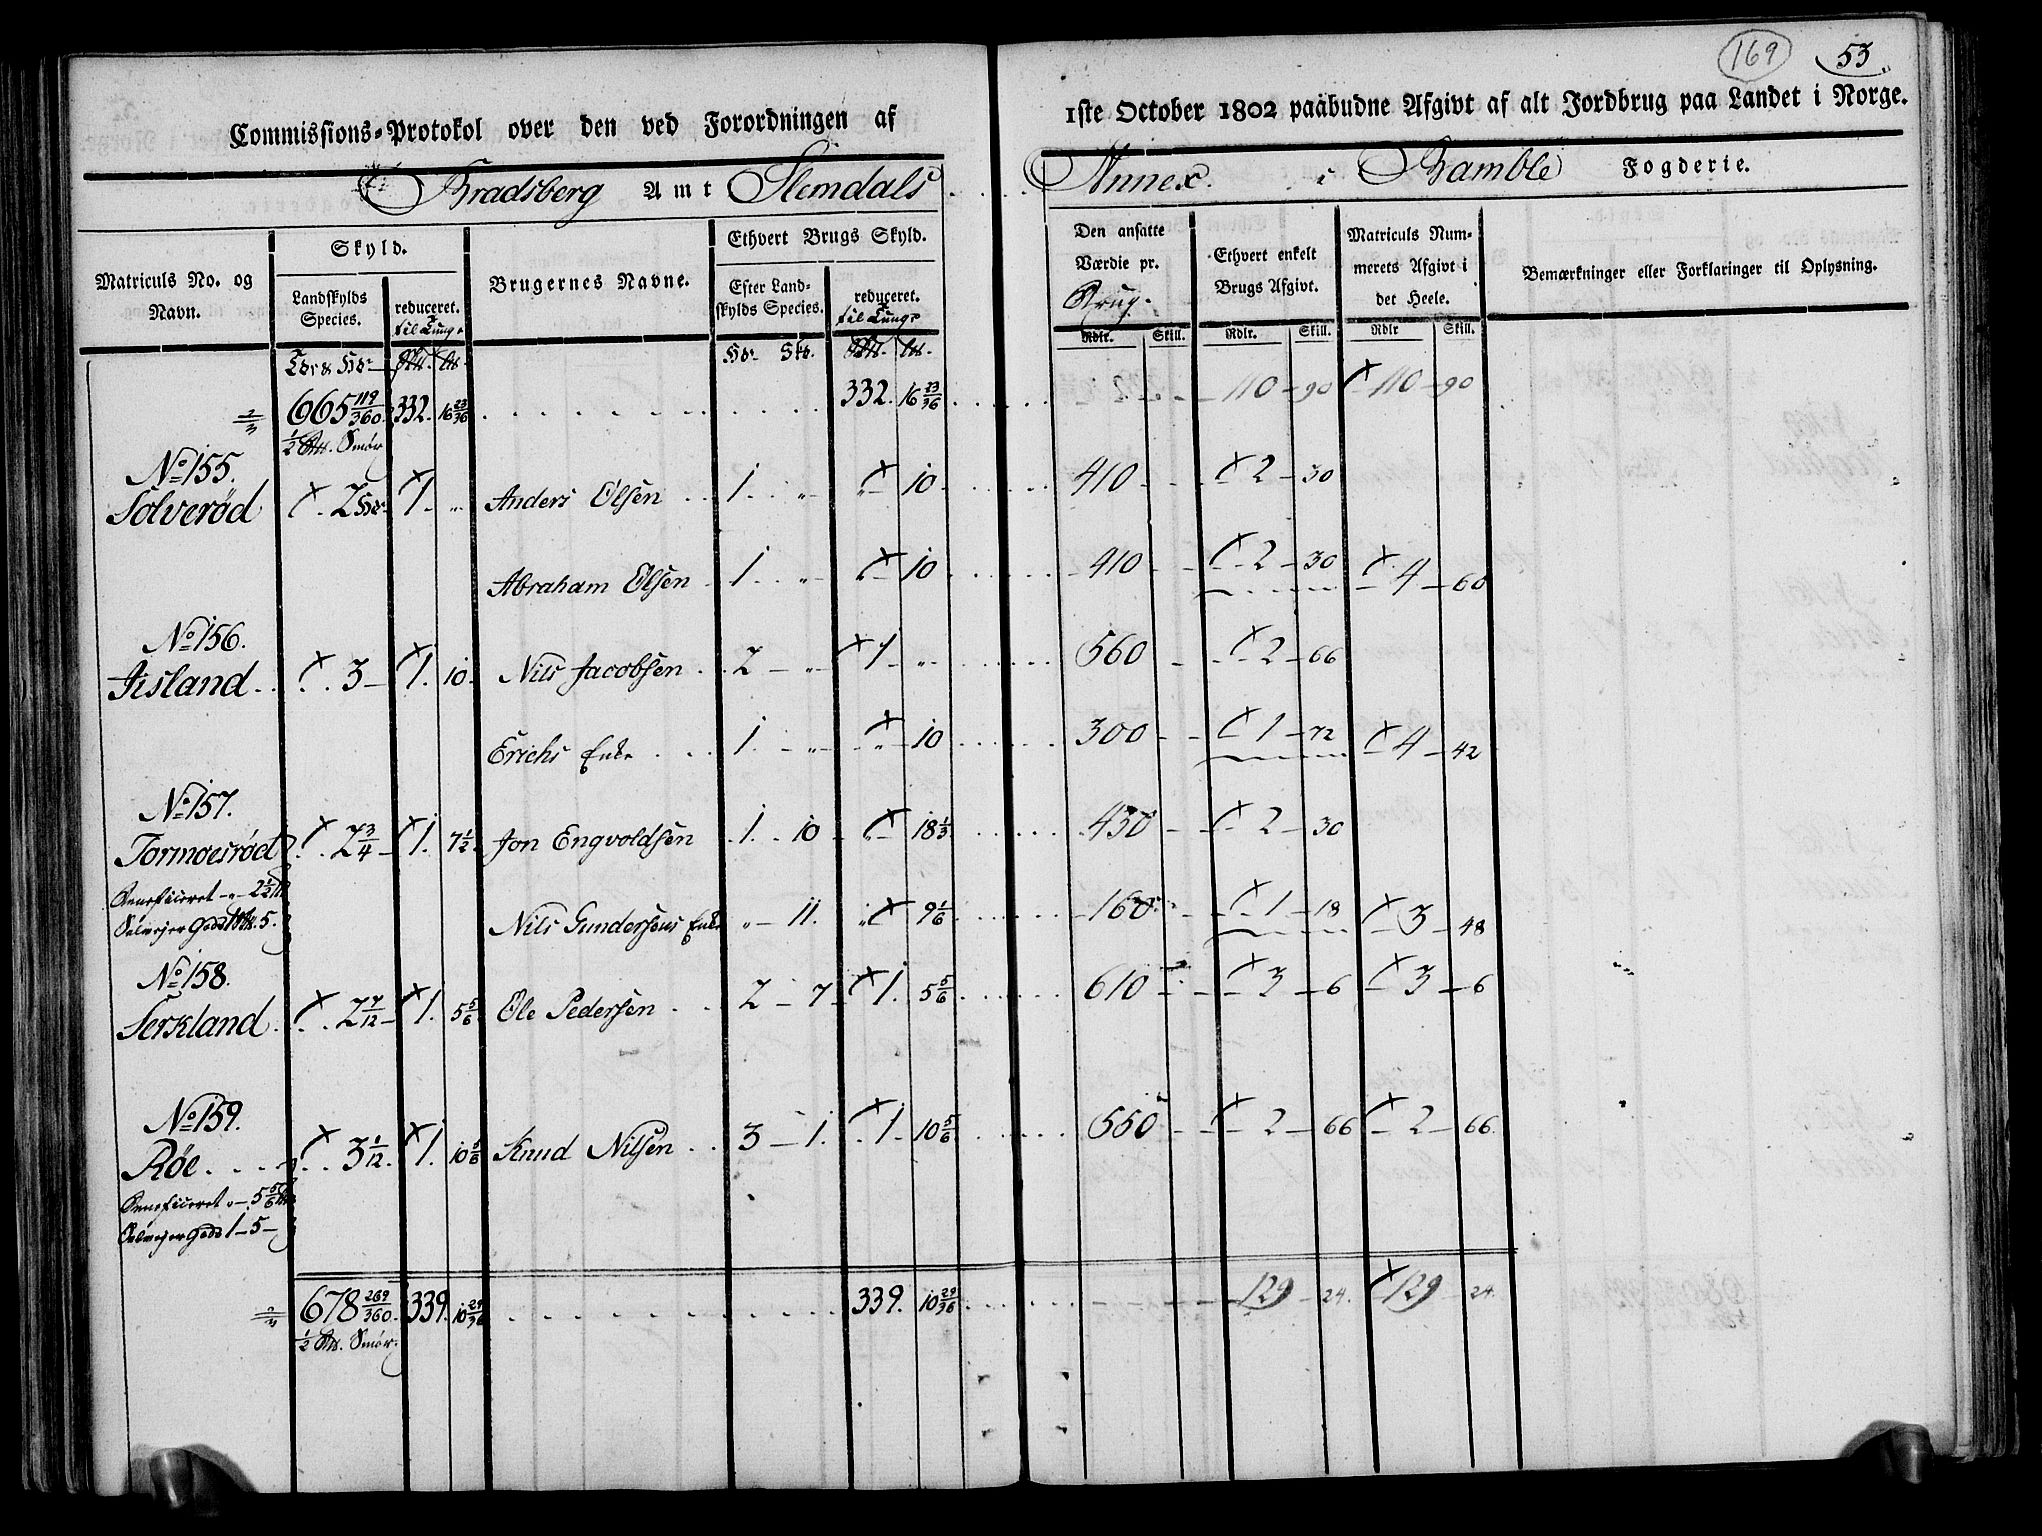 169 53
Commissions-Protokol over den ved Forordningen af 1ste October 1802 paabudne Afgivt af alt Jordbrug paa Landet i Norge.
Bradsberg Amt Slemdals Annex i Bamble Fogderie.
Matriculs No. og Navn.
Skyld.
Landskylds Species.
reduceret. til Tunge
Brugernes Navne.
Ethvert Brugs Skyld.
Efter Landskylds Species.
reduceret. til Tunge
Den ansatte Værdie pr. Brug.
Rdlr. Skill.
Ethvert enkelt Brugs Afgivt.
Rdlr. Skill.
Matriculs Nummerets Afgivt i det Heele.
Rdlr Skill.
Bemærkninger eller Forklaringer til Oplysning.
665 119/360 332. 16 23/36 332. 16 23/36 110 - 90 110 - 90
1/2 Smør
No 155.
Solverød 2 1 " Anders Olsen 1 " " 10 410 2 - 30
Abraham Olsen 1 " " 10 410 2 - 30 4 - 60
No 156.
Iisland 3 1. 10 Nils Jacobsen 2 - " 1 - " 560 2 - 66
Erichs Enke 1 - " " 10 300 1 - 72 4 - 42
No 157.
Tormoesrød 2 3/4 1. 7 1/2 Jon Engvoldsen 1. 10 " 18 1/3 430 2 - 30
Beneficeret - " - 2 1/2
Selvejer Gods 5.
Nils Gundersens Enke " - 11. " 9 1/6 160 1 - 18 3 - 48
No 158.
Serkland 2 7/12 1. 5 5/6 Ole Pedersen 2 - 7 1. 5 5/6 610 3 - 6 3 - 6
No 159.
Røe 3 1/12 1. 10 5/6 Knud Nilsen 3 - 1. 1 - 10 5/6 550 2 - 66 2 - 66
Beneficeret " - 5 5/6
Selvejer Gods 1 - 5 -
678 269/360 339. 10 29/36 339. 10 29/36 129 - 24. 129 - 24
1/2 Smør